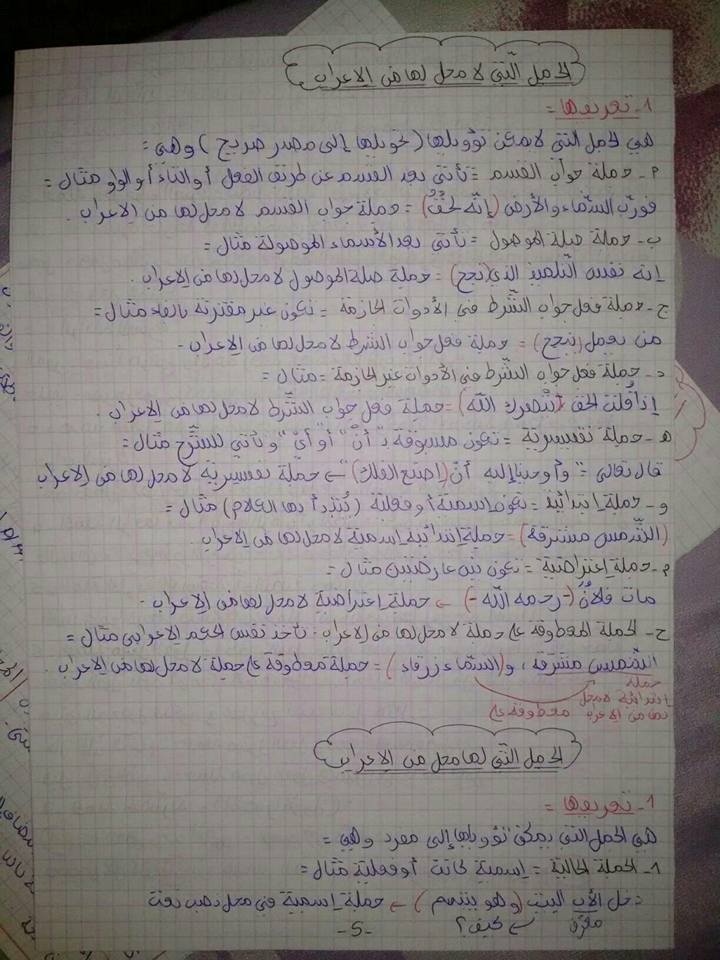 الجمل التي لا محل لها من الإعراب
1- تعريفها =
هي الجمل التي لا يمكن تؤويلها (تحويلها إلى مصدر صريح) وهي =
م- جملة جواب القسم = تأتي بعد القسم عن طريق الفعل أو التاء أو الواو مثال =
فورب السماء والأرض (إنّه لحقٌّ) = جملة جواب القسم لا محل لها من الإعراب.
ب- جملة صلة الموصول = تأتي بعد الأسماء الموصولة مثال =
إنه نفس التلميذ الذي (نجح) = جملة صلة الموصول لا محل لها من الإعراب.
ج- جملة فعل جواب الشّرط في الأدوات الجازمة = تكون غير مقترنة بالفاء مثال =
من يعمل (ينجح) = جملة فعل جواب الشرط لا محل لها من الإعراب.
د- جملة فعل جواب الشّرط في الأدوات غير الجازمة = مثال =
إذا قلت الحق (نصرك الله) = جملة فعل جواب الشّرط لا محل لها من الإعراب.
هـ- جملة تفسيرية = تكون مسبوقة بـ "أنْ" أو "أيْ" وتأتي للشّرح مثال =
قال تعالى = "وأوحينا إليه أنْ (اصنع الفلك)" ← جملة تفسيرية لا محل لها من الإعراب
و- جملة إبتدائية = تكون اسمية أو فعلية (يُبتدأ بها الكلام) مثال =
(الشّمس مشرقة) = جملة إبتدائية اسمية لا محل لها من الإعراب.
م- جملة إعتراضية = تكون بين عارضتين مثال =
مات فلانٌ (- رحمه الله -) ← جملة إعتراضية لا محل لها من الإعراب.
ح- الجملة المعطوفة على جملة لا محل لها من الإعراب: تأخذ نفس الحكم الإعرابي مثال =
الشمس مشرقة، و(السّماء زرقاء) = جملة معطوفة على جملة لا محل لها من الإعراب.
جملة
إبتدائية لا محل
لها من الإعراب معطوفة على
الجمل التي لها محل من الإعراب
1- تعريفها =
هي الجمل التي يمكن تؤويلها إلى مفرد وهي =
1- الجملة الحالية = إسمية كانت أو فعلية مثال =
دخل الأب البيت (وهو يبتسم) ← جملة إسمية في محل نصب نعت
معرفة ← كيف؟
-5-